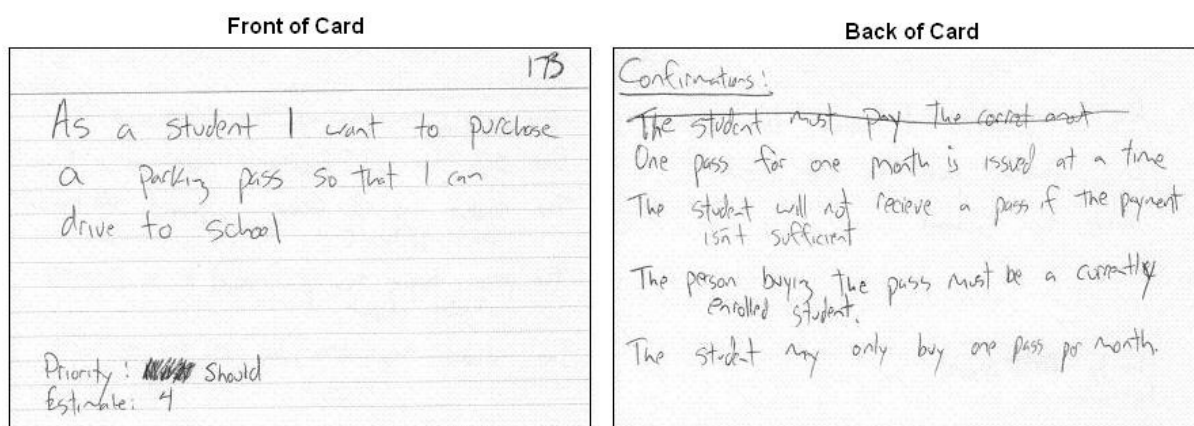 Front of Card
173
As a student I want to purchase
a parking pass so that I can
drive to school
Priority: Should
Estimate: 4
Back of Card
Confirmations:
The student must pay the corret amot
One pass for one month is issued at a time
The student will not recieve a pass if the payment
isn't sufficient
The person buying the pass must be a currently
enrolled student.
The student may only buy one pass per month.